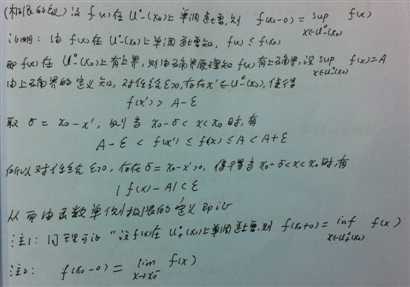 (极限的定义) 设 f(x) 在 U°₋(x₀) 上单调递增, 则 f(x₀-0) = sup f(x)
x∈U°₋(x₀)
证明: 由 f(x) 在 U°₋(x₀) 上单调递增知, f(x) ≤ f(x₀)
即 f(x) 在 U°₋(x₀) 上有上界, 则由确界原理知 f(x) 有上确界, 记 sup f(x) = A
x∈U°₋(x₀)
由上确界的定义知, 对任给 ε>0, 存在 x'∈U°₋(x₀), 使得
f(x') > A-ε
取 δ = x₀-x', 则当 x₀-δ < x < x₀ 时, 有
A-ε < f(x') ≤ f(x) ≤ A < A+ε
所以对任给 ε>0, 存在 δ = x₀-x'>0, 使得当 x₀-δ<x<x₀ 时, 有
|f(x)-A| < ε
从而由函数单侧极限的定义即证
注1: 同理可证 "设 f(x) 在 U°₊(x₀) 上单调递增, 则 f(x₀+0) = inf f(x)
x∈U°₊(x₀)
注2: f(x₀-0) = lim f(x)
x→x₀⁻